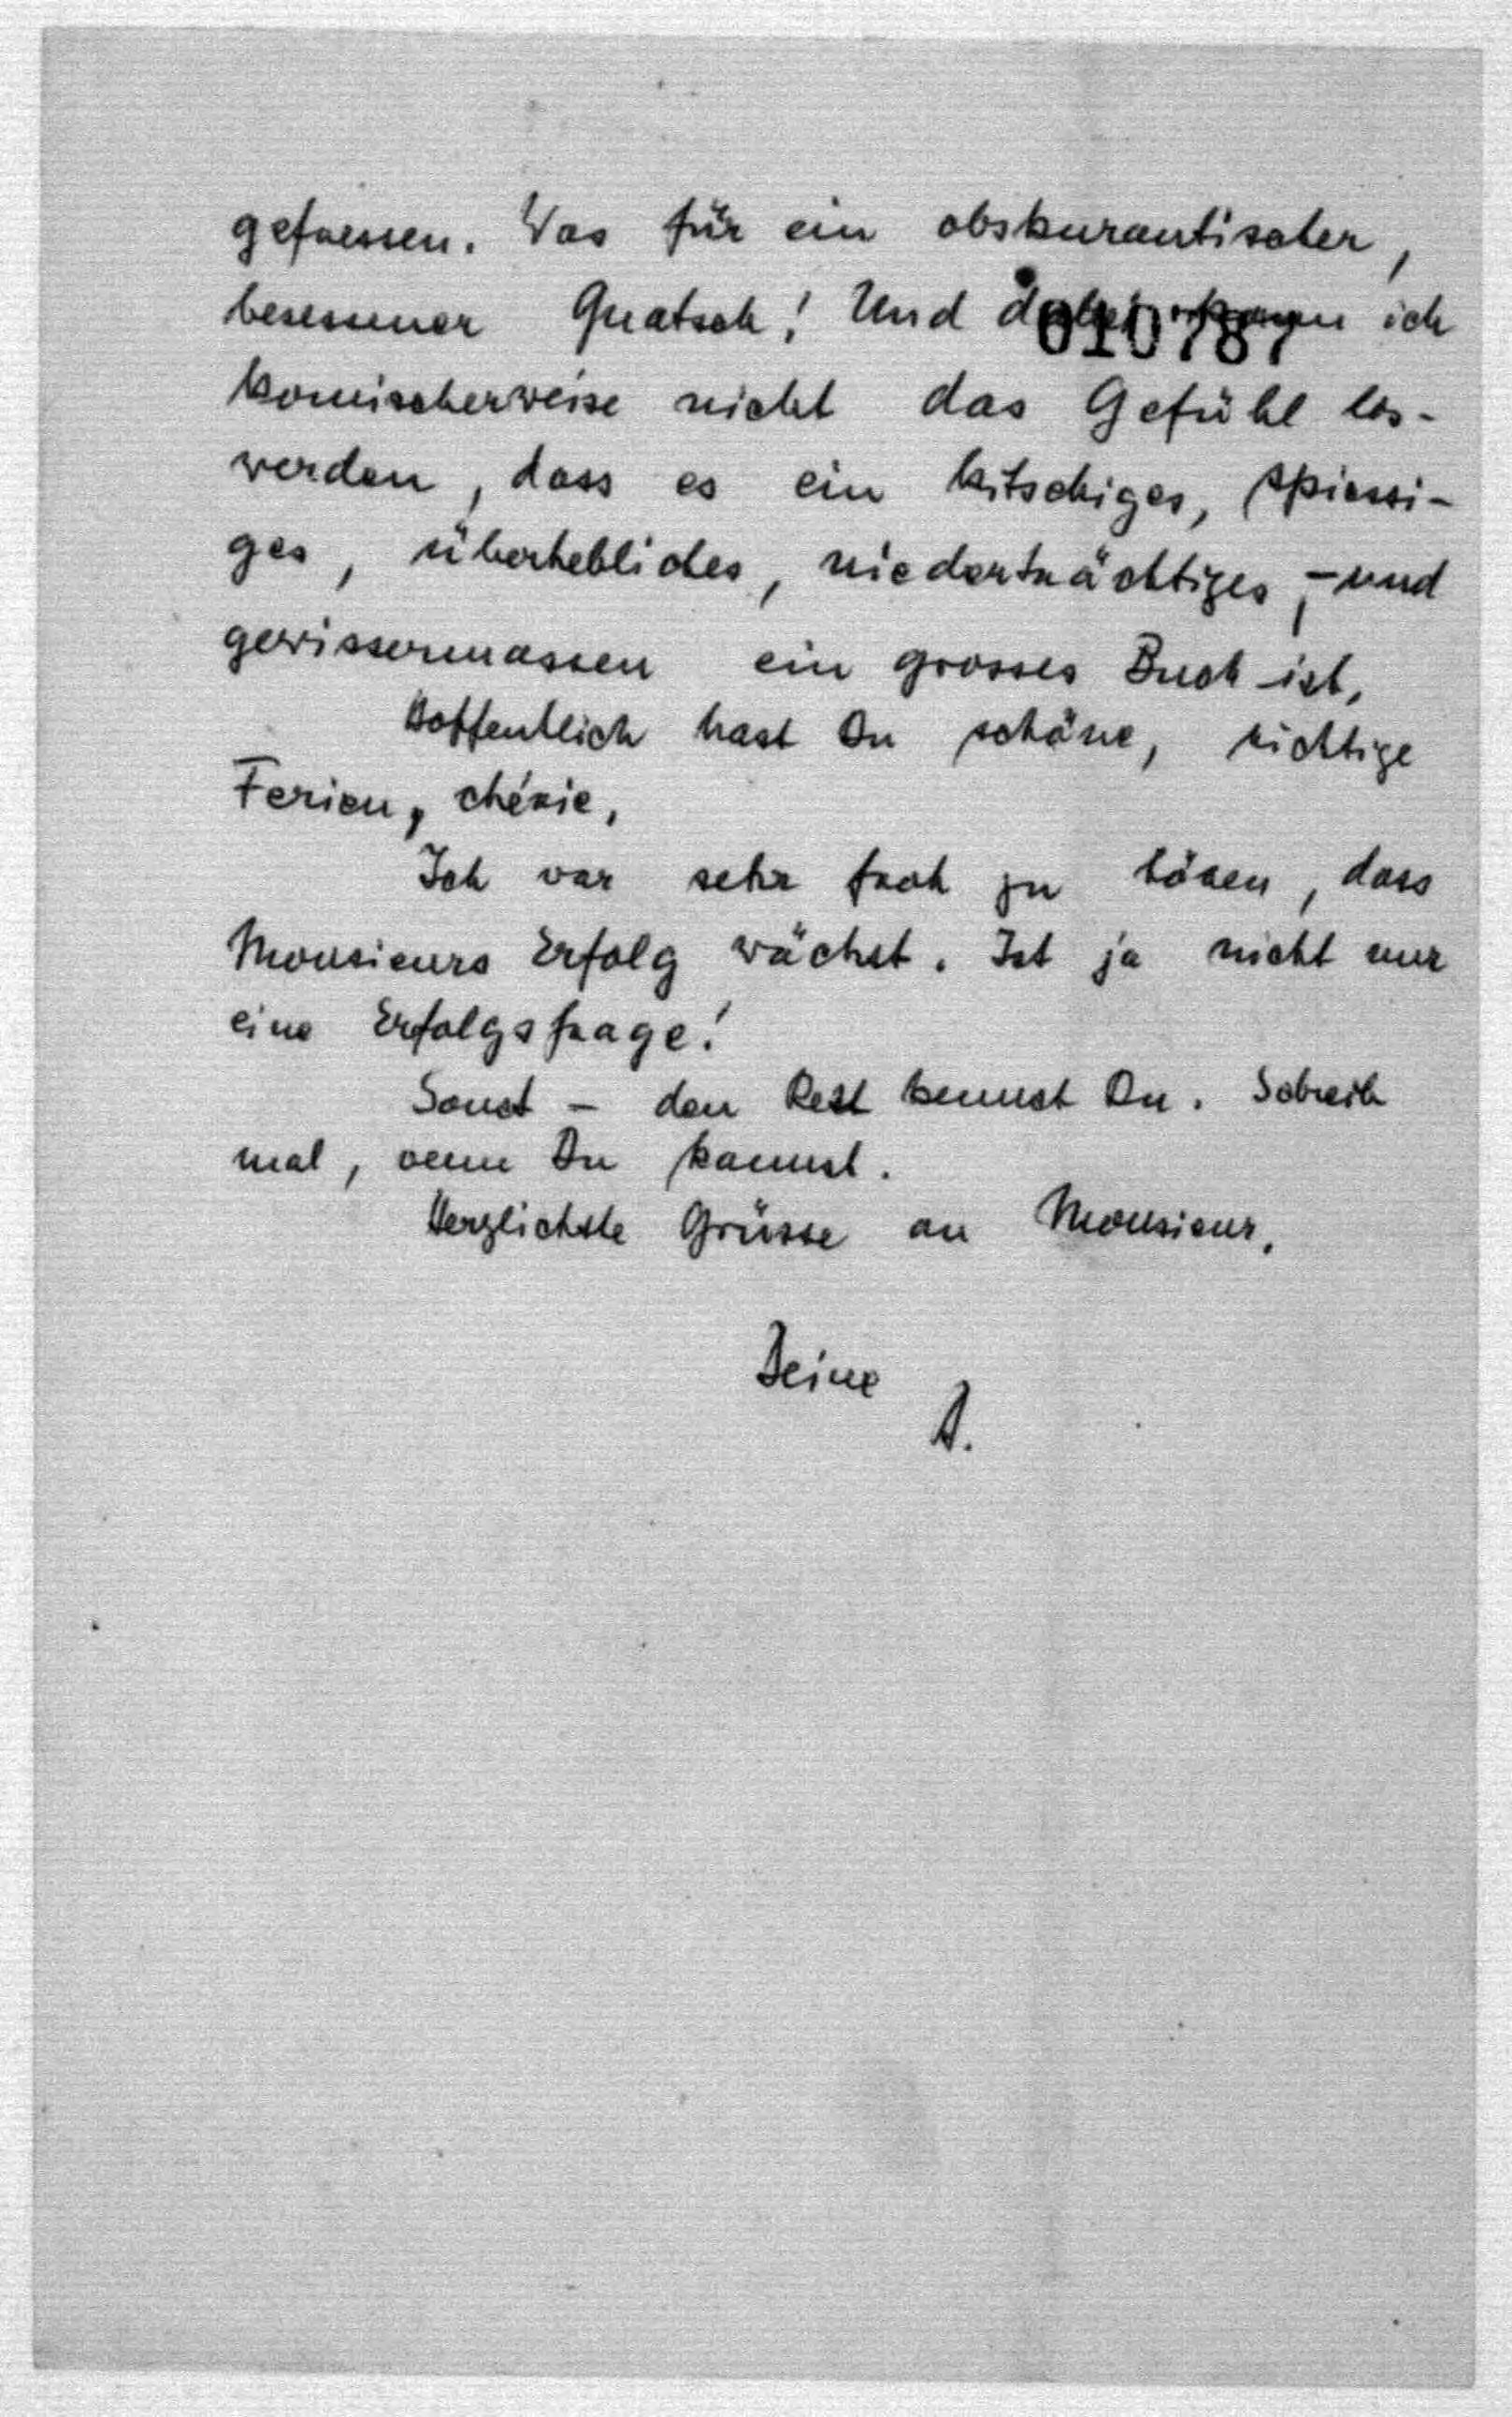 gefressen. Was für ein obskurantischer,
besessener Quatsch! Und dabei kann ich
010787
komischerweise nicht das Gefühl los-
werden, dass es ein kitschiges, spiessi-
ges, überhebliches, niederträchtiges, - und
gewissermassen ein grosses Buch ist.
Hoffentlich hast Du schöne, richtige
Ferien, chérie.
Ich war sehr froh zu hören, dass
Monsieurs Erfolg wächst. Ist ja nicht nur
eine Erfolgsfrage!
Sonst - den Rest kennst Du. Schreib
mal, wenn Du kannst.
Herzlichste Grüsse an Monsieur.
Deine
A.